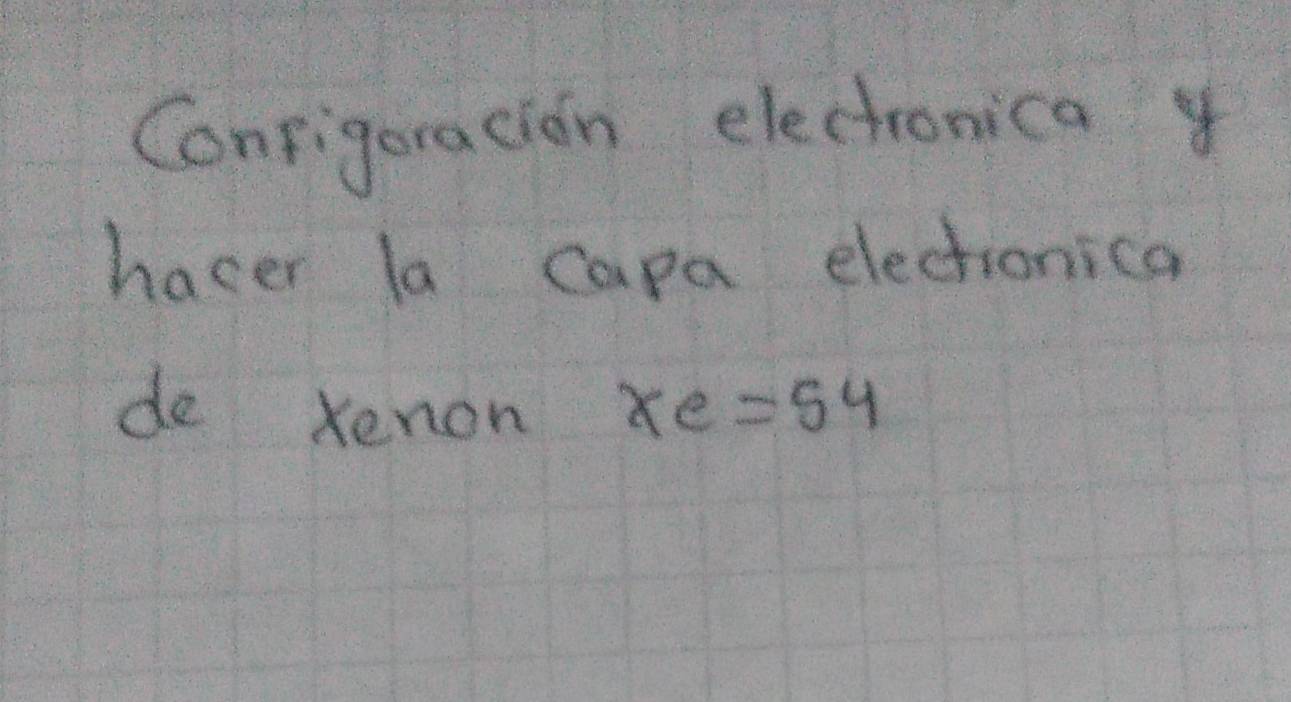 Configuración electronica y
hacer la capa electronica
de xenon xe=54